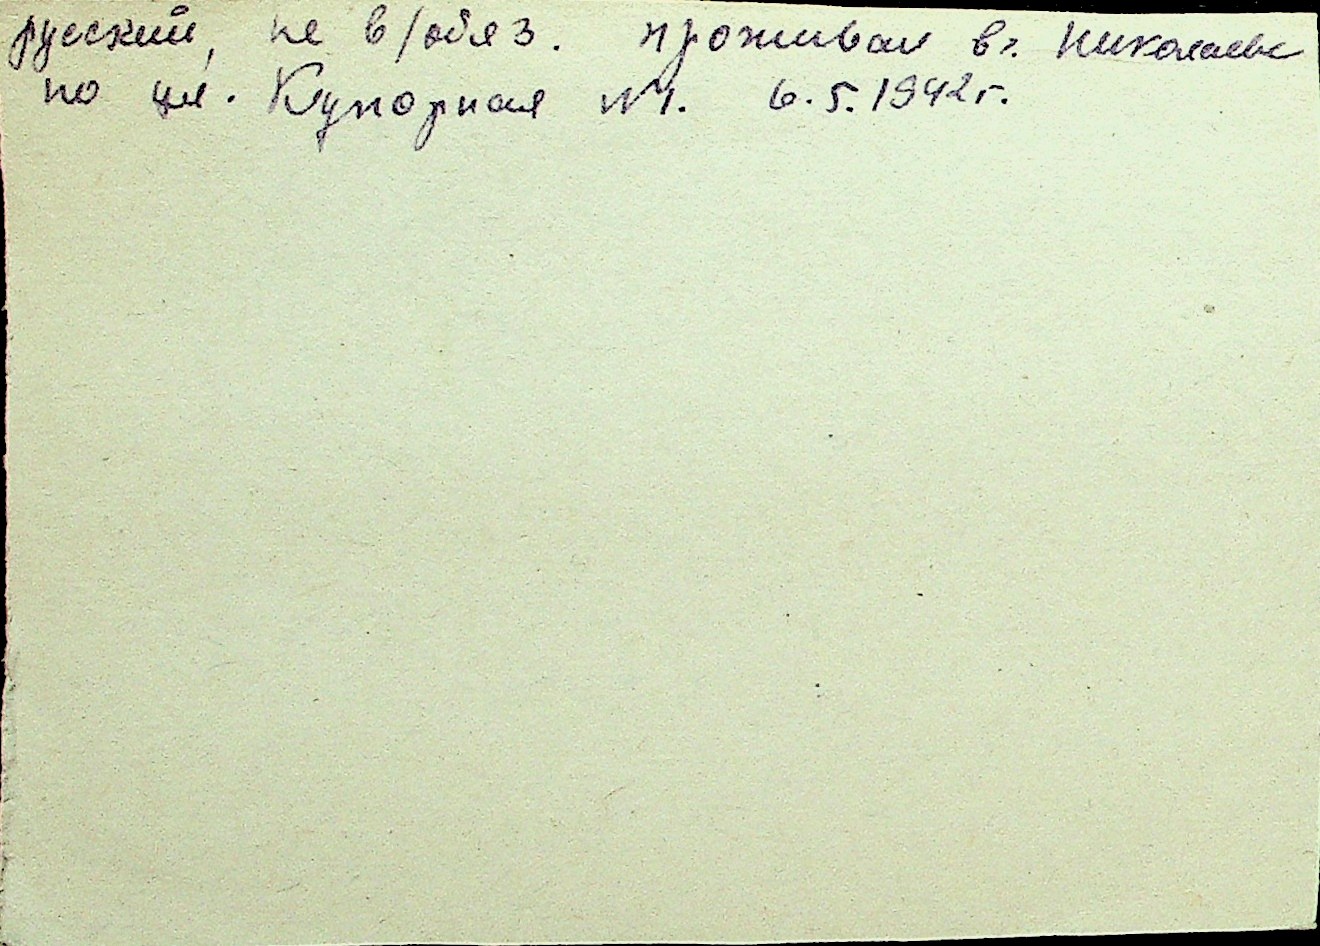 русский, не в/обяз. проживал в г. Николаеве
по ул. Купорная №1. 6.5.1942 г.